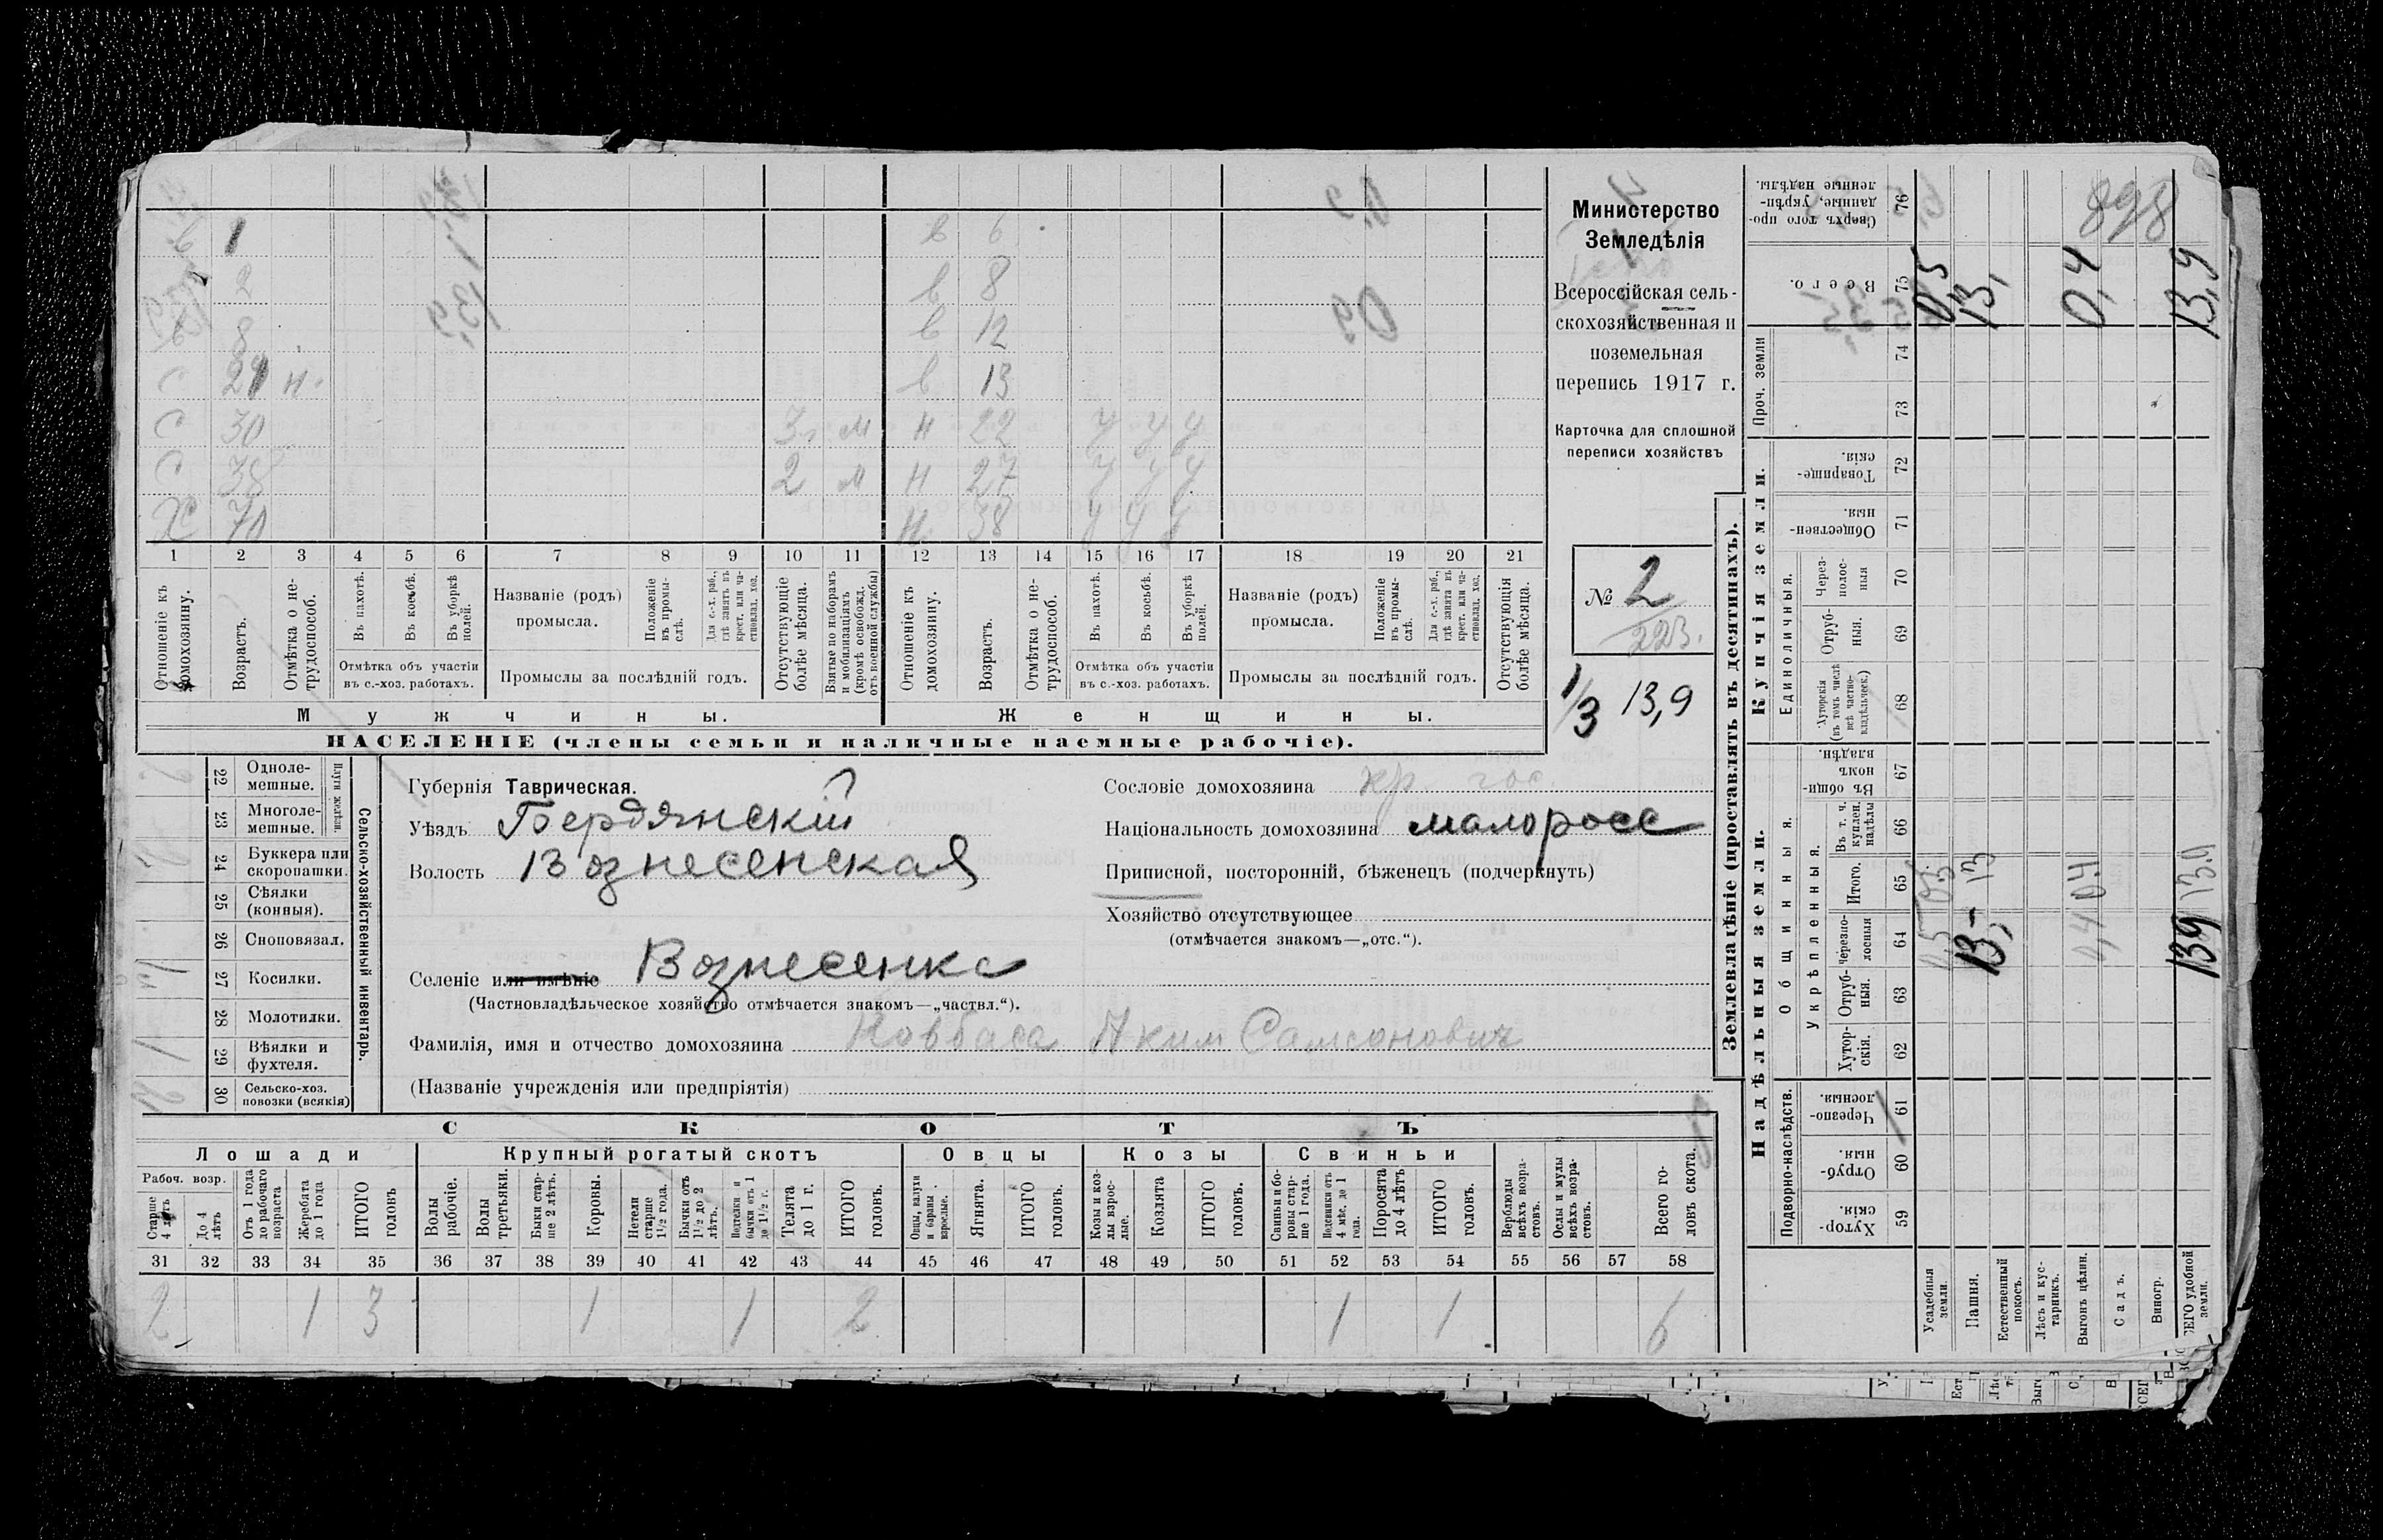 Министерство
Земледѣлія
Всероссійская сель-
скохозяйственная и
поземельная
перепись 1917 г.
Карточка для сплошной
переписи хозяйствъ
№ 2
223.
1/3 13,9
1 в 6
2 в 8
в 8 в 12
с 21 н. в 13
с 30 3 м н 22 у у у
с 38 2 м н 27 у у у
Х 70 н. 38 у у у
1 2 3 4 5 6 7 8 9 10 11 12 13 14 15 16 17 18 19 20 21
Отношеніе къ домохозяину.
Возрастъ.
Отмѣтка о не-трудоспособ.
Въ пахотѣ.
Въ косьбѣ.
Въ уборкѣ полей.
Отмѣтка объ участіи
въ с.-хоз. работахъ.
Названіе (родъ)
промысла.
Положеніе въ промы-слѣ.
Для с.-х. раб., гдѣ занятъ въ крест. или ча-стновлад. хоз.
Промыслы за послѣдній годъ.
Отсутствующіе болѣе мѣсяца.
Взятые по наборамъ и мобилизаціямъ (кромѣ освобожд. отъ военной службы)
Отношеніе къ домохозяину.
Возрастъ.
Отмѣтка о не-трудоспособ.
Въ пахотѣ.
Въ косьбѣ.
Въ уборкѣ полей.
Отмѣтка объ участіи
въ с.-хоз. работахъ.
Названіе (родъ)
промысла.
Положеніе въ промы-слѣ.
Для с.-х. раб., гдѣ занята въ крест. или ча-стновлад. хоз.
Промыслы за послѣдній годъ.
Отсутствующія болѣе мѣсяца.
Мужчины.
Женщины.
НАСЕЛЕНІЕ (члены семьи и наличные наемные рабочіе).
22 Одноле-мешные.
23 Многоле-мешные.
Плуги желѣзн.
24 Буккера или скоропашки.
25 Сѣялки (конныя).
26 Сноповязал.
27 Косилки. 1
28 Молотилки.
29 Вѣялки и фухтеля. 1
30 Сельско-хоз. повозки (всякія)
Сельско-хозяйственный инвентарь.
Губернія Таврическая.
Уѣздъ Бердянскій
Волость Вознесенская
Селеніе или имѣніе Вознесенка
(Частновладѣльческое хозяйство отмѣчается знакомъ—„частвл.“).
Фамилія, имя и отчество домохозяина Ковбаса Аким Самсонович
(Названіе учрежденія или предпріятія)
Сословіе домохозяина кр. гос.
Національность домохозяина малоросс
Приписной, посторонній, бѣженецъ (подчеркнуть)
Хозяйство отсутствующее
(отмѣчается знакомъ—„отс.“).
СКОТЪ
Лошади
Крупный рогатый скотъ
Овцы
Козы
Свиньи
Рабоч. возр.
Старше 4 лѣтъ
До 4 лѣтъ
Отъ 1 года до рабочаго возраста
Жеребята до 1 года
ИТОГО головъ
Волы рабочіе.
Волы третьяки.
Быки стар-ше 2 лѣтъ.
Коровы.
Нетели старше 1½ года.
Бычки отъ 1½ до 2 лѣтъ.
Подтелки и бычки отъ 1 до 1½ г.
Телята до 1 г.
ИТОГО головъ.
Овцы, валухи и бараны взрослые.
Ягнята.
ИТОГО головъ.
Козы и коз-лы взрос-лые.
Козлята
ИТОГО головъ.
Свиньи и бо-ровы стар-ше 1 года.
Подсвинки отъ 4 мѣс. до 1 года.
Поросята до 4 лѣтъ
ИТОГО головъ.
Верблюды всѣхъ возра-стовъ.
Ослы и мулы всѣхъ возра-стовъ.
Всего го-ловъ скота.
31 32 33 34 35 36 37 38 39 40 41 42 43 44 45 46 47 48 49 50 51 52 53 54 55 56 57 58
2 1 3 1 1 2 1 1 6
Землевладѣніе (проставлять въ десятинахъ).
Надѣльныя земли.
Купчія земли.
Проч. земли
Подворно-наслѣдств.
Общинныя.
Укрѣпленныя.
Единоличныя.
Хутор-скія. 59
Отруб-ныя. 60
Черезпо-лосныя. 61
Хутор-скія. 62
Отруб-ныя. 63
Черезпо-лосныя 64
Итого. 65
Въ т. ч. куплен. надѣлы 66
Въ общи-номъ владѣн. 67
Хуторскія (въ томъ числѣ всѣ частно-владѣльческ.) 68
Отруб-ныя. 69
Через-полос-ныя 70
Обществен-ныя. 71
Товарище-скія. 72
73
74
Всего. 75
Сверхъ того про-данные, укрѣп-ленные надѣлы. 76
898
Усадебныя земли. 0,5 0,5 0,5
Пашня. 13,- 13 13,
Естественный покосъ.
Лѣсъ и кус-тарникъ.
Выгонъ цѣлин. 0,4 0,4 0,4
Садъ.
Виногр.
ВСЕГО удобной земли. 13,9 13,9 13,9